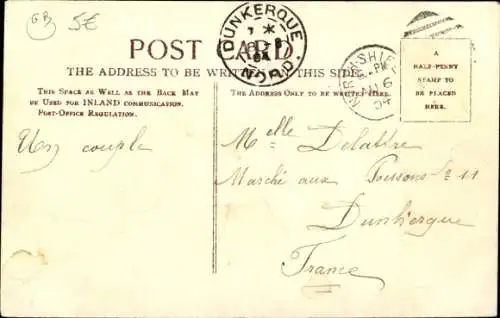 GB 5€
POST CARD
THE ADDRESS TO BE WRITTEN THIS SIDE
DUNKERQUE
7 *
04
NORD
NORTH-SHIE
PM
6
04
A
HALF-PENNY
STAMP TO
BE PLACED
HERE.
THIS SPACE AS WELL AS THE BACK MAY
BE USED FOR INLAND COMMUNICATION.
POST-OFFICE REGULATION.
THE ADDRESS ONLY TO BE WRITTEN HERE.
Un couple
Melle Delattre
Marché aux Poissons 11
Dunkerque
France